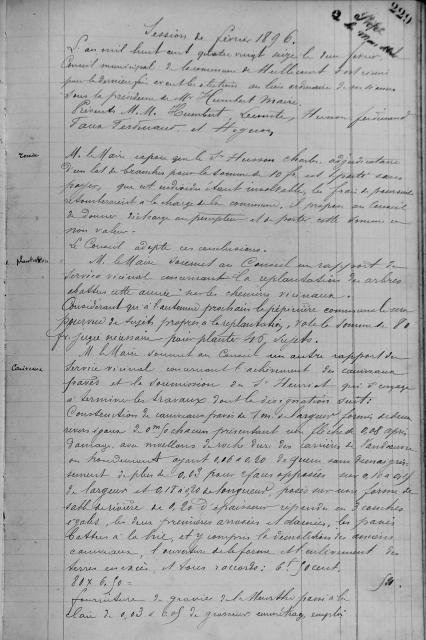 229
Session de février 1896.
L'an mil huit cent quatre vingt seize le deux février
Conseil municipal de la commune de s'est réuni
pour la dernière fois avant les élections au lieu ordinaire de ses séances
sous la présidence de Mr Humbert Maire.
Présents M.M. Humbert, Lecomte, Husson ferdinand
Ferdinand et
M. le Maire expose que le Sr Husson Charles adjudicataire
d'un lot de branches pour la somme de 10 fr est parti sans
payer, que cet individu étant insolvable les frais de poursuite
retomberaient à la charge de la commune, il propose au Conseil
de donner décharge au percepteur et de porter cette somme en
non valeur.
Le Conseil adopte ces conclusions.
plantation
M. le Maire soumet au Conseil un rapport du
Service vicinal concernant la replantation des arbres
abattus cette année sur les chemins vicinaux.
Considérant qu'à l'automne prochain la pépinière communale sera
pourvue de sujets propres à la replantation, vote la somme de 80
fr. jugée nécessaire pour planter 40 sujets.
Caniveaux
M. le Maire soumet au Conseil un autre rapport du
Service vicinal concernant l'achèvement des caniveaux
pavés et la soumission du Sr Henriot qui s'engage
à terminer les travaux dont la désignation suit:
Construction de caniveaux pavés de 1m de largeur formés de deux
revers égaux de chacun présentant une flèche de 0,08 après
damage, aux moellons de roche dur des carrières de
ou ayant 0,16 à 0,20 de queue sans démaigris-
sement de plus de 0,03 pour 2 faces opposées sur 0,10 à 0,15
de largeur et 0,18 à 0,20 de longueur, posés sur une forme de
sable de rivière de 0,20 d'épaisseur répandu en 3 couches
égales, les deux premières arrosées et damées, les pavés
battus à la hie, et y compris la démolition des anciens
caniveaux, l'ouverture de la forme et l'enlèvement des
terres en excès, et vous raccords: 6f 50 cent.
80 x 6.50 = 520.
fourniture de gravier de la Meurthe passé à la
claie de 0,03 à 0,05 de grosseur emmétrage, emploi